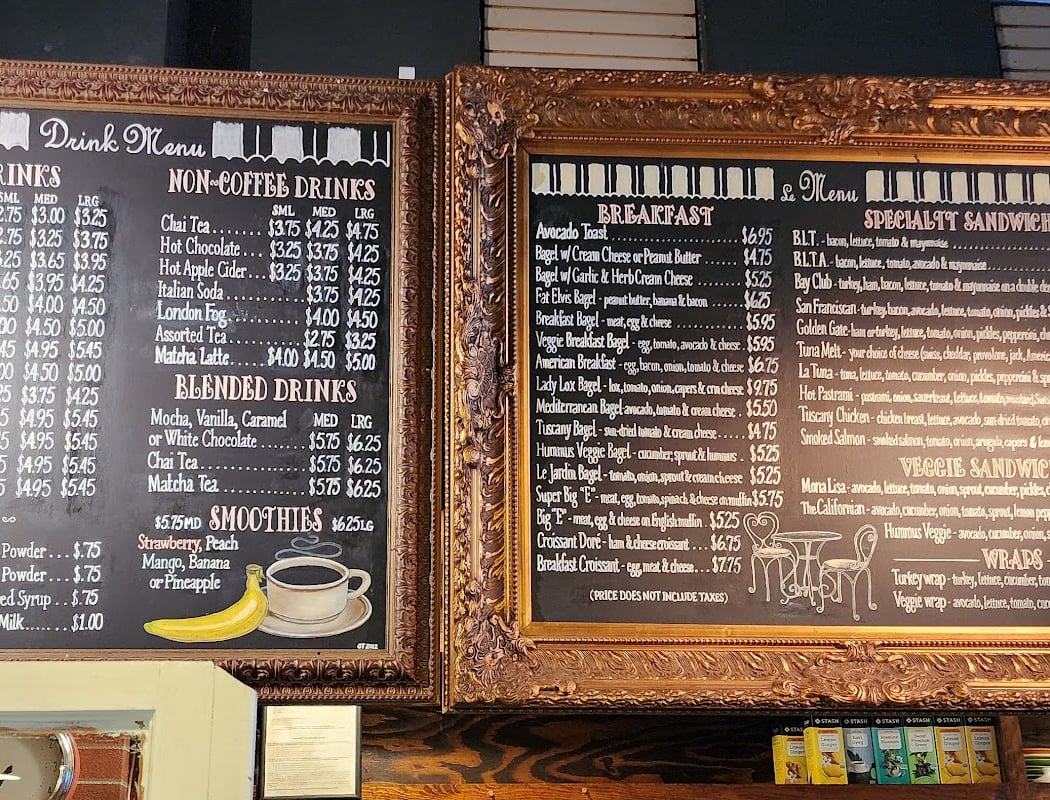 Drink Menu
RINKS
SML MED LRG
2.75 $3.00 $3.25
2.75 $3.25 $3.75
.25 $3.65 $3.95
.65 $3.95 $4.25
.50 $4.00 $4.50
00 $4.50 $5.00
45 $4.95 $5.45
00 $4.50 $5.00
25 $3.75 $4.25
5 $4.95 $5.45
5 $4.95 $5.45
5 $4.95 $5.45
5 $4.95 $5.45
Powder ... $.75
Powder ... $.75
ed Syrup .. $.75
Milk ....... $1.00
NON-COFFEE DRINKS
SML MED LRG
Chai Tea ........... $3.75 $4.25 $4.75
Hot Chocolate ... $3.25 $3.75 $4.25
Hot Apple Cider ... $3.25 $3.75 $4.25
Italian Soda ........ $3.75 $4.25
London Fog ........ $4.00 $4.50
Assorted Tea ........ $2.75 $3.25
Matcha Latte ....... $4.00 $4.50 $5.00
BLENDED DRINKS
Mocha, Vanilla, Caramel MED LRG
or White Chocolate ....... $5.75 $6.25
Chai Tea ............... $5.75 $6.25
Matcha Tea ............ $5.75 $6.25
$5.75 MD SMOOTHIES $6.25 LG
Strawberry, Peach
Mango, Banana
or Pineapple
Le Menu
BREAKFAST
Avocado Toast .................. $6.95
Bagel w/ Cream Cheese or Peanut Butter ....... $4.75
Bagel w/ Garlic & Herb Cream Cheese $5.25
Fat Elvis Bagel - peanut butter, banana & bacon ....... $6.25
Breakfast Bagel - meat, egg & cheese ............ $5.95
Veggie Breakfast Bagel - egg, tomato, avocado & cheese . $5.95
American Breakfast - egg, bacon, onion, tomato & cheese $6.75
Lady Lox Bagel - lox, tomato, onion, capers & crm cheese . $9.75
Mediterranean Bagel - avocado, tomato & cream cheese . $5.50
Tuscany Bagel - sun-dried tomato & cream cheese ...... $4.75
Hummus Veggie Bagel - cucumber, sprout & hummus . $5.25
Le Jardin Bagel - tomato, onion, sprout & cream cheese $5.25
Super Big "E" - meat, egg, tomato, spinach & cheese on muffin $5.75
Big "E" - meat, egg & cheese on English muffin .. $5.25
Croissant Doré - ham & cheese croissant ... $6.75
Breakfast Croissant - egg, meat & cheese ... $7.75
(PRICE DOES NOT INCLUDE TAXES)
SPECIALTY SANDWICH
B.L.T. - bacon, lettuce, tomato & mayonnaise
B.L.T.A. - bacon, lettuce, tomato, avocado & mayonnaise
Bay Club - turkey, ham, bacon, lettuce, tomato & mayonnaise on a double de
San Franciscan - turkey, bacon, avocado, lettuce, tomato, onion, pickles &
Golden Gate - ham or turkey, lettuce, tomato, onion, pickles, pepperoncini, ch
Tuna Melt - your choice of cheese (swiss, cheddar, provolone, jack, Americ
La Tuna - tuna, lettuce, tomato, cucumber, onion, pickles, pepperoncini & spr
Hot Pastrami - pastrami, onion, sauerkraut, lettuce, tomato, mustard, Swis
Tuscany Chicken - chicken breast, lettuce, avocado, sun-dried tomato, on
Smoked Salmon - smoked salmon, tomato, onion, arugula, capers & lem
VEGGIE SANDWIC
Mona Lisa - avocado, lettuce, tomato, onion, sprout, cucumber, pickles, c
The Californian - avocado, cucumber, onion, tomato, sprout, lemon pepp
Hummus Veggie - avocado, cucumber, onion, s
WRAPS
Turkey wrap - turkey, lettuce, cucumber, tom
Veggie wrap - avocado, lettuce, tomato, cuc
STASH STASH STASH STASH STASH STASH
Lemon Ginger
Lemon Ginger
Earl Grey
Lemon Ginger